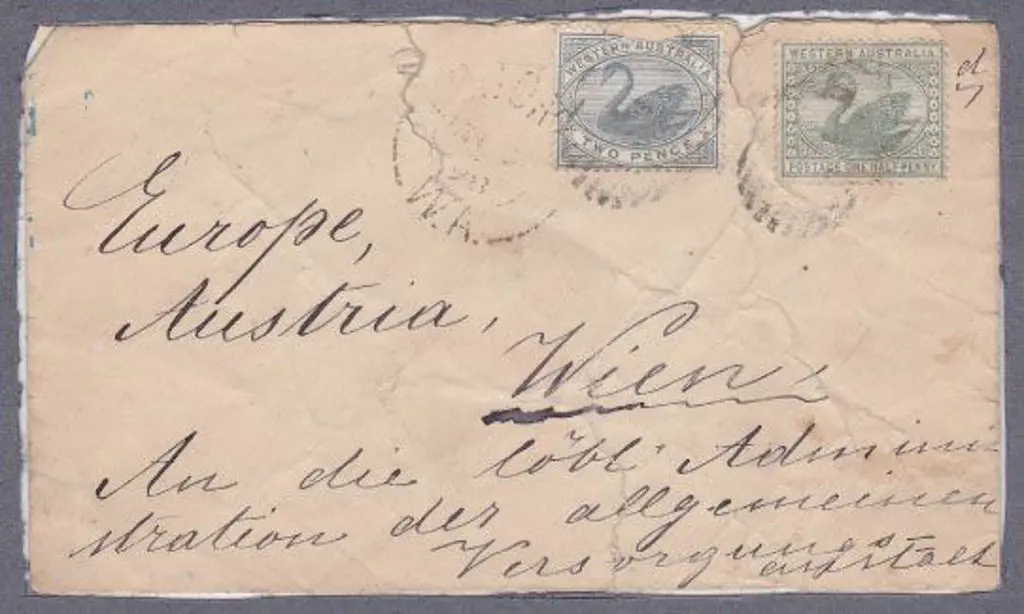 WESTERN AUSTRALIA
TWO PENCE
WESTERN AUSTRALIA
POSTAGE ONE HALF-PENNY
W.A.
Europe,
Austria,
Wien,
An die löbl. Admini
stration der allgemeinen
Versorgungs
anstalt